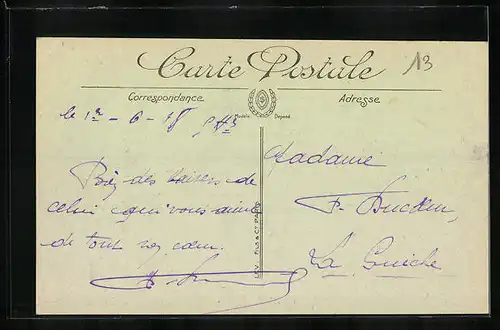 Carte Postale
13
Correspondance
Adresse
Modèle Déposé
le 1er - 6 - 18
Madame
des baisers de
celui qui vous aime
de tout son cœur.
La Guiche
LEV. FILS & Cie PARIS